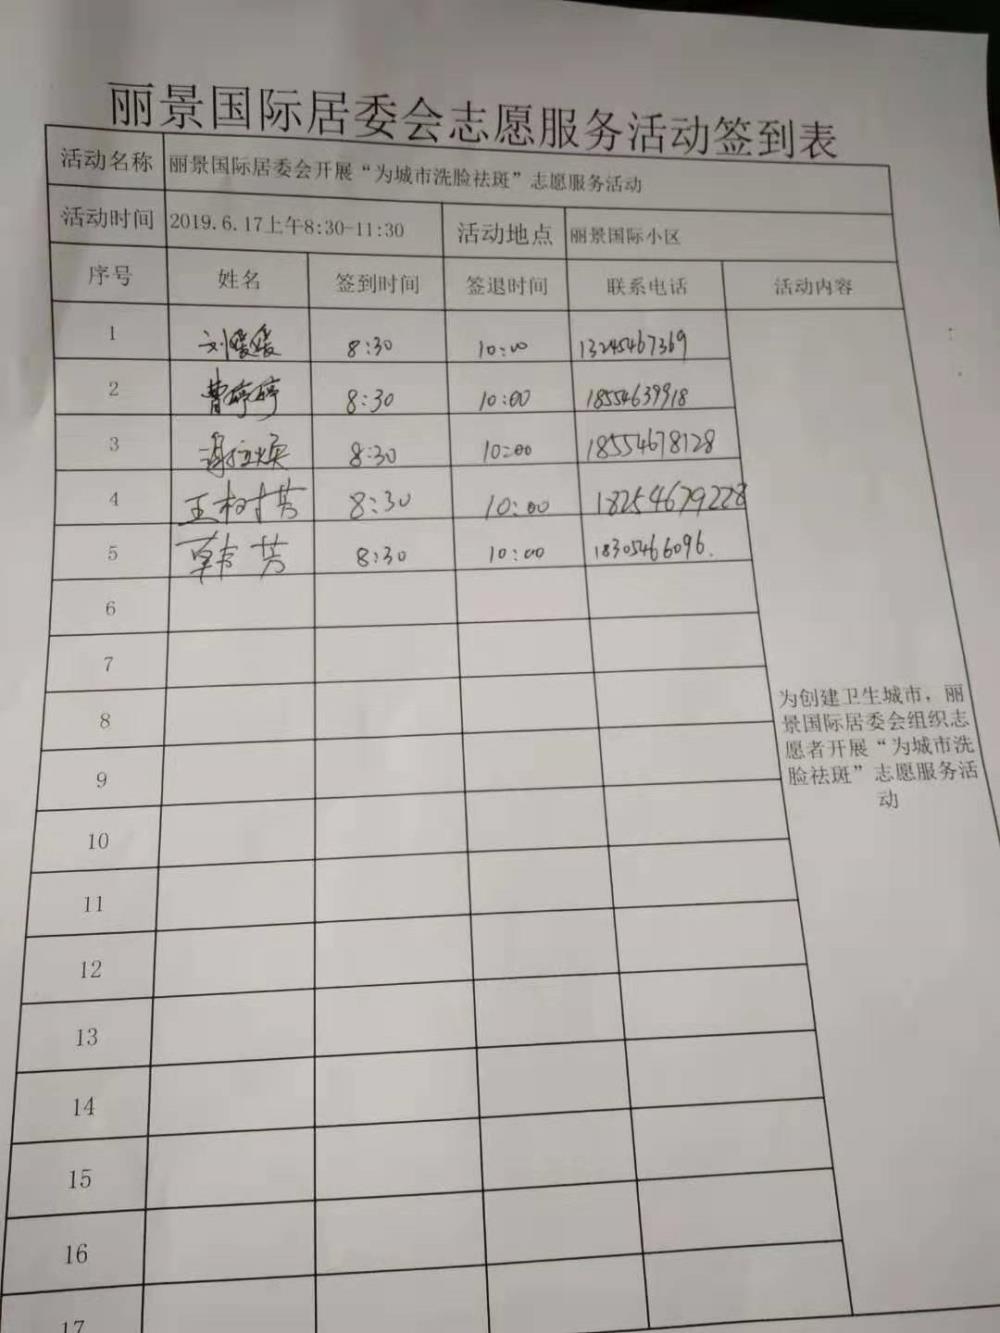 丽景国际居委会志愿服务活动签到表
活动名称 丽景国际居委会开展“为城市洗脸祛斑”志愿服务活动
活动时间 2019.6.17上午8:30-11:30 活动地点 丽景国际小区
序号 姓名 签到时间 签退时间 联系电话 活动内容
1 刘媛媛 8:30 10:00 13245467369
2 曹婷婷 8:30 10:00 18554639918
3 8:30 10:00 18554678128
4 王树芳 8:30 10:00 18254679228
5 韩芳 8:30 10:00 18305466096.
6
7
为创建卫生城市，丽
景国际居委会组织志
愿者开展“为城市洗
脸祛斑”志愿服务活
动
8
9
10
11
12
13
14
15
16
17